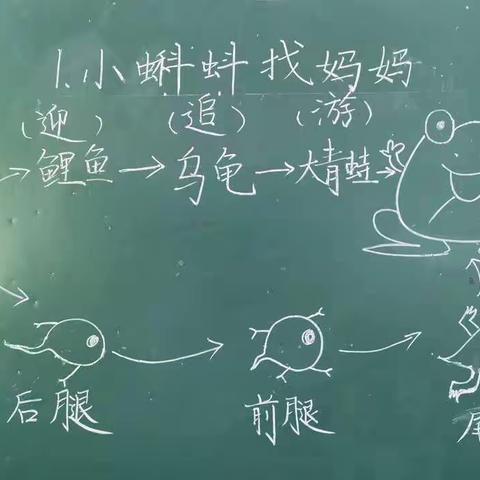 1.小蝌蚪找妈妈
(迎) (追) (游)
→鲤鱼→乌龟→大青蛙→
后腿 前腿